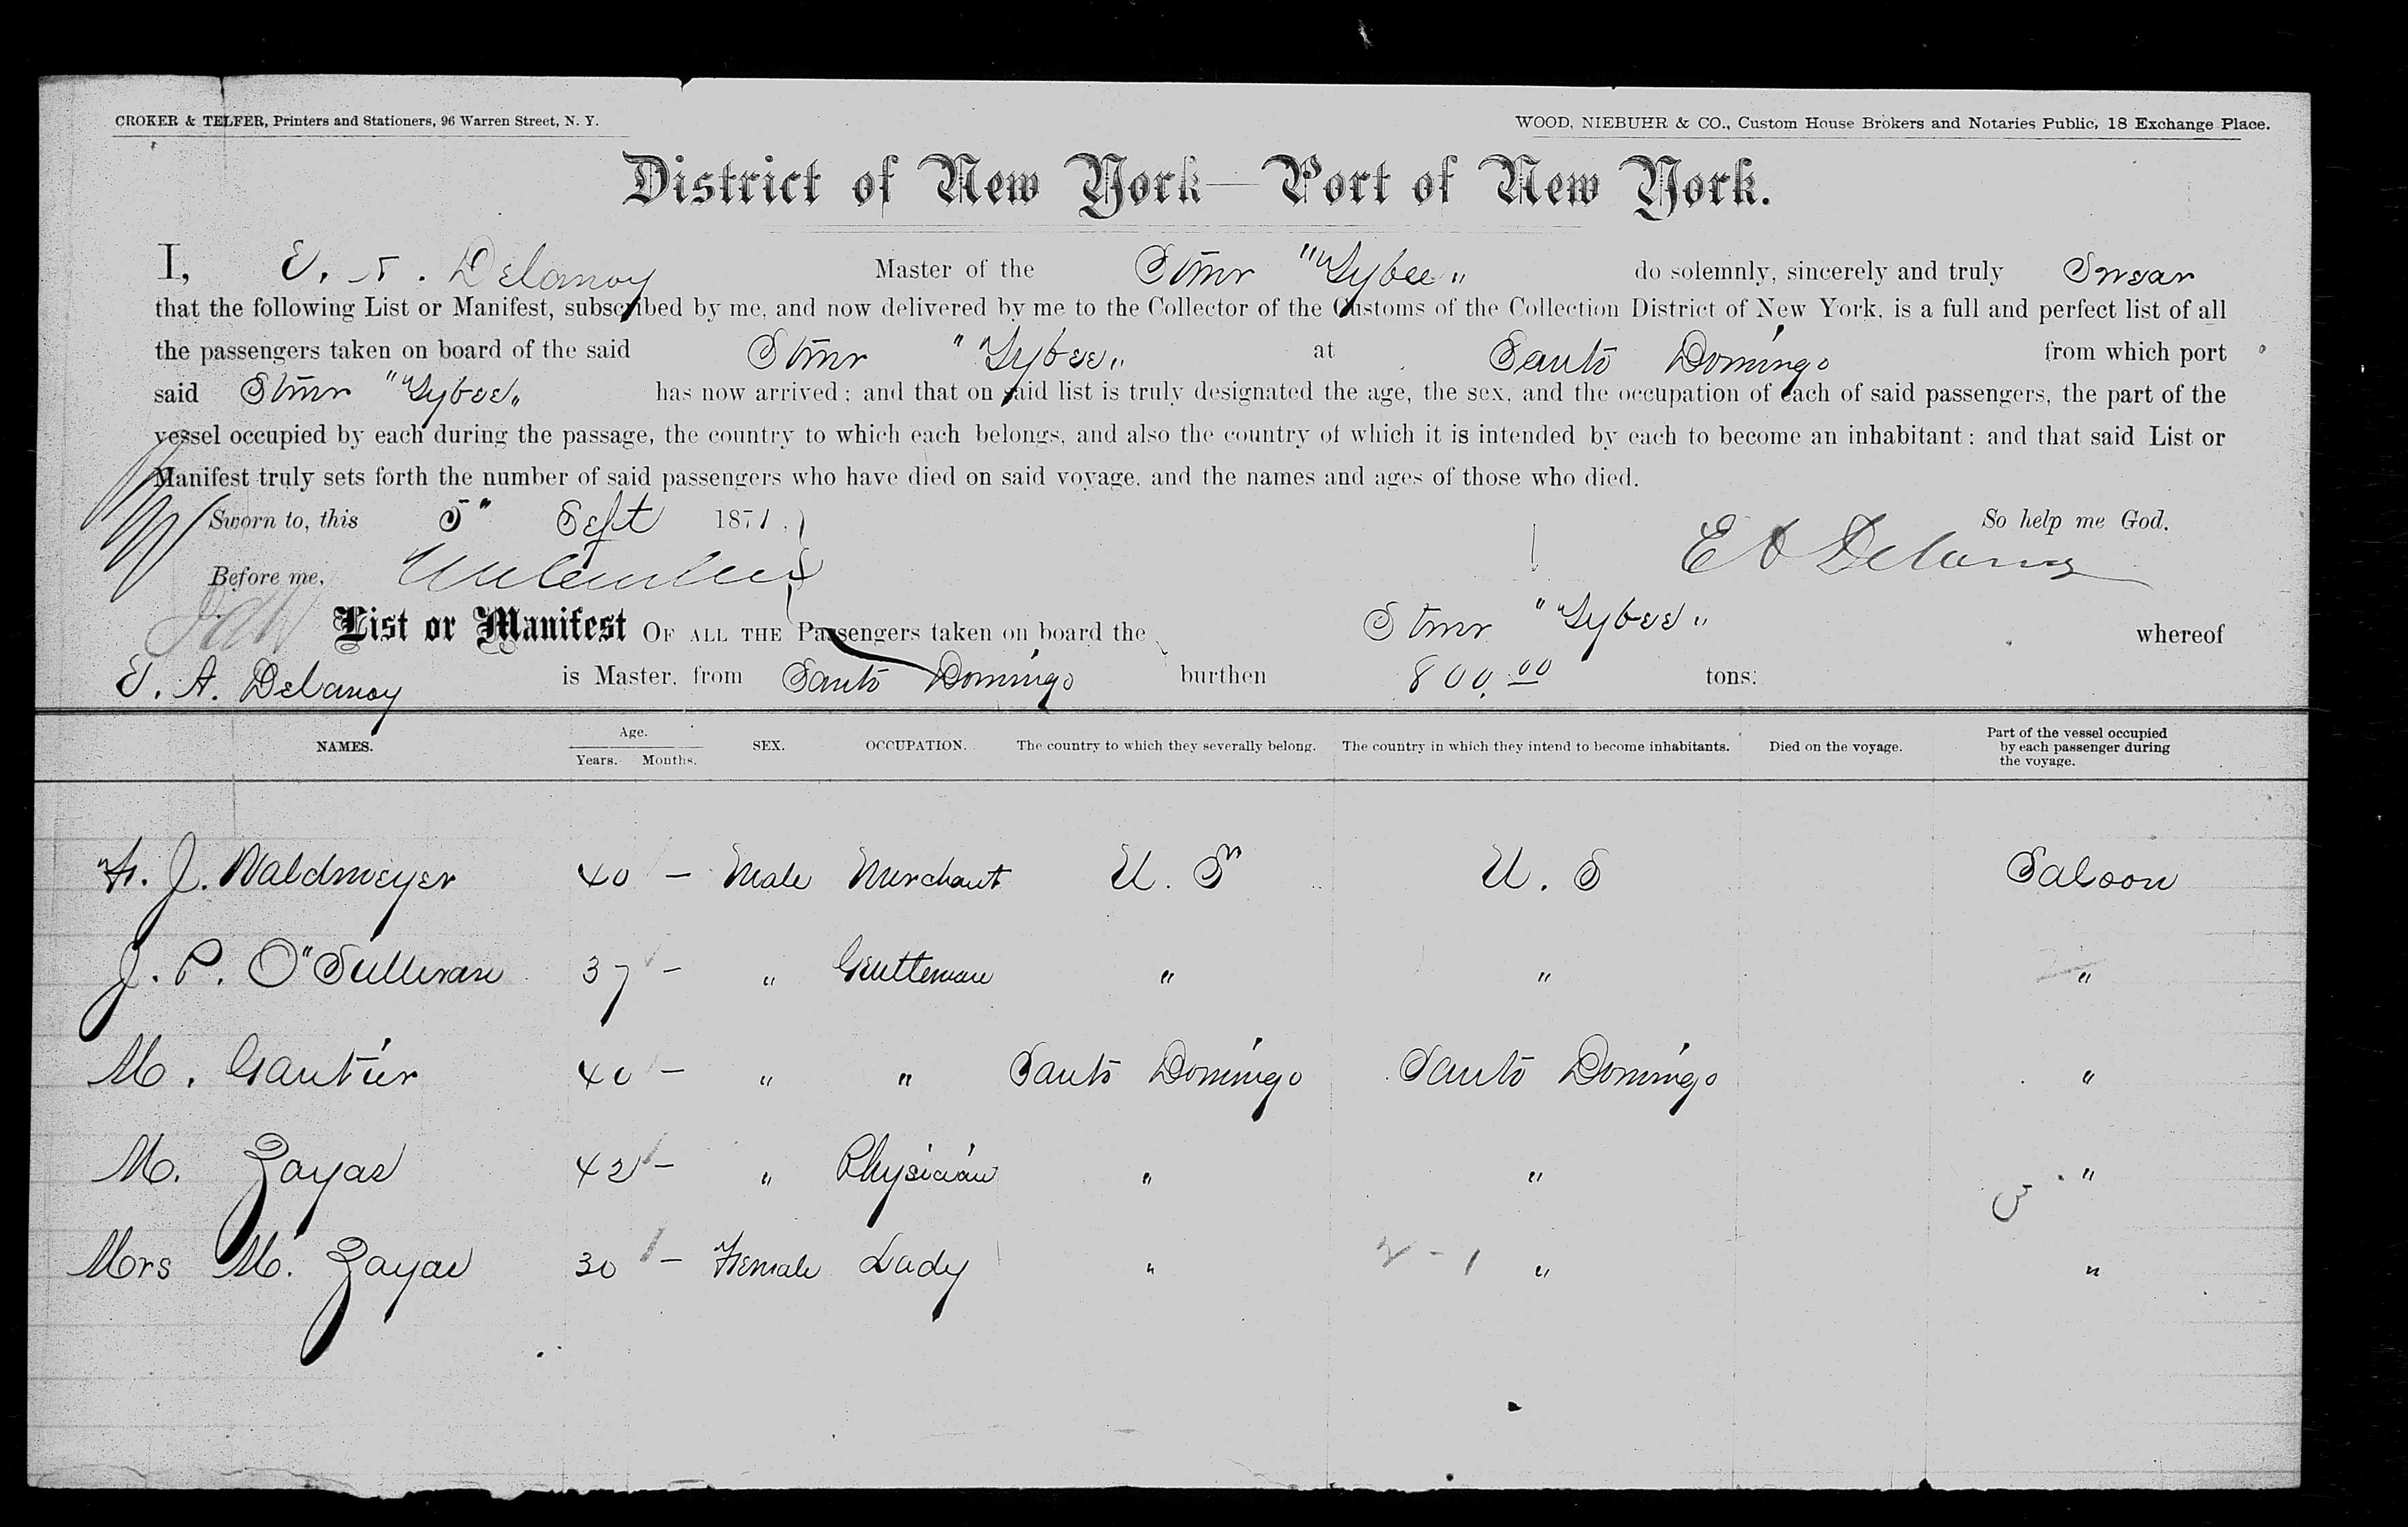 CROKER & TELFER, Printers and Stationers, 96 Warren Street, N. Y. WOOD, NIEBUHR & CO., Custom House Brokers and Notaries Public, 18 Exchange Place.
District of New York—Port of New York.
I, E. A. Delanoy Master of the Stmr "Tybee" do solemnly, sincerely and truly Swear
that the following List or Manifest, subscribed by me, and now delivered by me to the Collector of the Customs of the Collection District of New York, is a full and perfect list of all
the passengers taken on board of the said Stmr "Tybee" at Santo Domingo from which port
said Stmr "Tybee" has now arrived; and that on said list is truly designated the age, the sex, and the occupation of each of said passengers, the part of the
vessel occupied by each during the passage, the country to which each belongs, and also the country of which it is intended by each to become an inhabitant; and that said List or
Manifest truly sets forth the number of said passengers who have died on said voyage, and the names and ages of those who died.
Sworn to, this 5" Sept 1871. So help me God.
Before me, E A Delanoy
List or Manifest OF ALL THE Passengers taken on board the Stmr "Tybee" whereof
E. A. Delanoy is Master, from Santo Domingo burthen 800.00 tons:
NAMES. Age. Years. Months. SEX. OCCUPATION. The country to which they severally belong. The country in which they intend to become inhabitants. Died on the voyage. Part of the vessel occupied by each passenger during the voyage.
F. J. Waldmeyer 40 – Male Merchant U. S U. S Saloon
J. P. O"Sullivan 37 – " Gentleman " " "
M. Gautier 40 – " " Santo Domingo Santo Domingo "
M. Zayas 42 – " Physician " " "
5
Mrs M. Zayas 30 – Female Lady " 2 - 1 " "